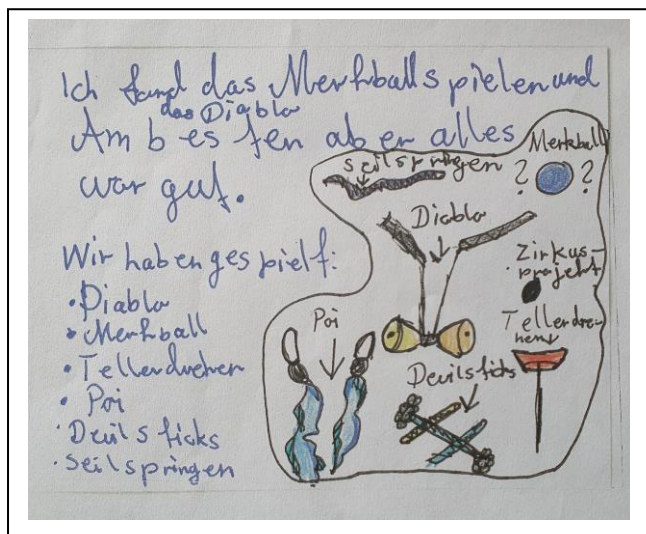 Ich fand das Merkballspielen und
das Diablo
Am besten aber alles
war gut.
Wir haben gespielt:
• Diablo
• Merkball
• Tellerdrehen
• Poi
• Devilsticks
• Seilspringen
Seilspringen
Merkball
? ?
Diablo
Zirkus-
projekt
Poi
Tellerdre-
hen
Devilsticks